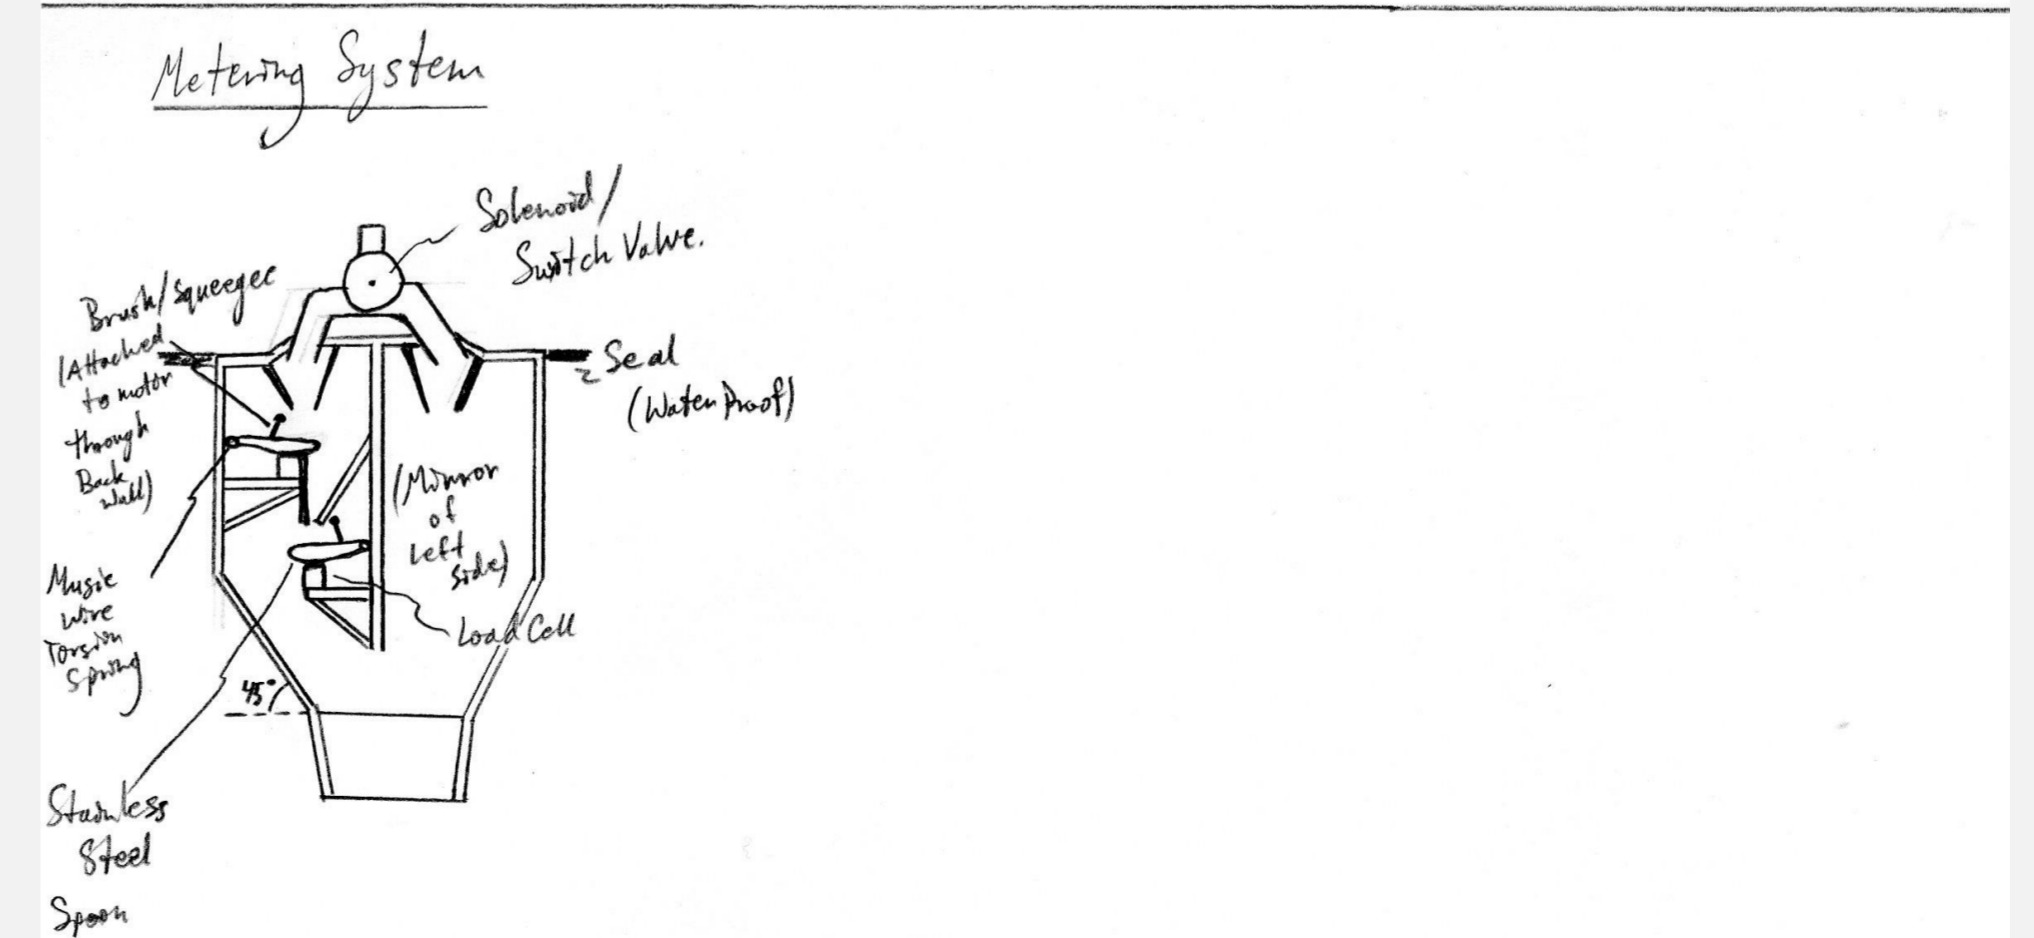 Metering System
Solenoid/
Switch Valve.
Brush/Squeegee
(Attached
to motor
through
Back
Wall)
Seal
(Water Proof)
(Mirror
of
Left
Side)
Music
Wire
Torsion
Spring
Load Cell
45°
Stainless
Steel
Spoon